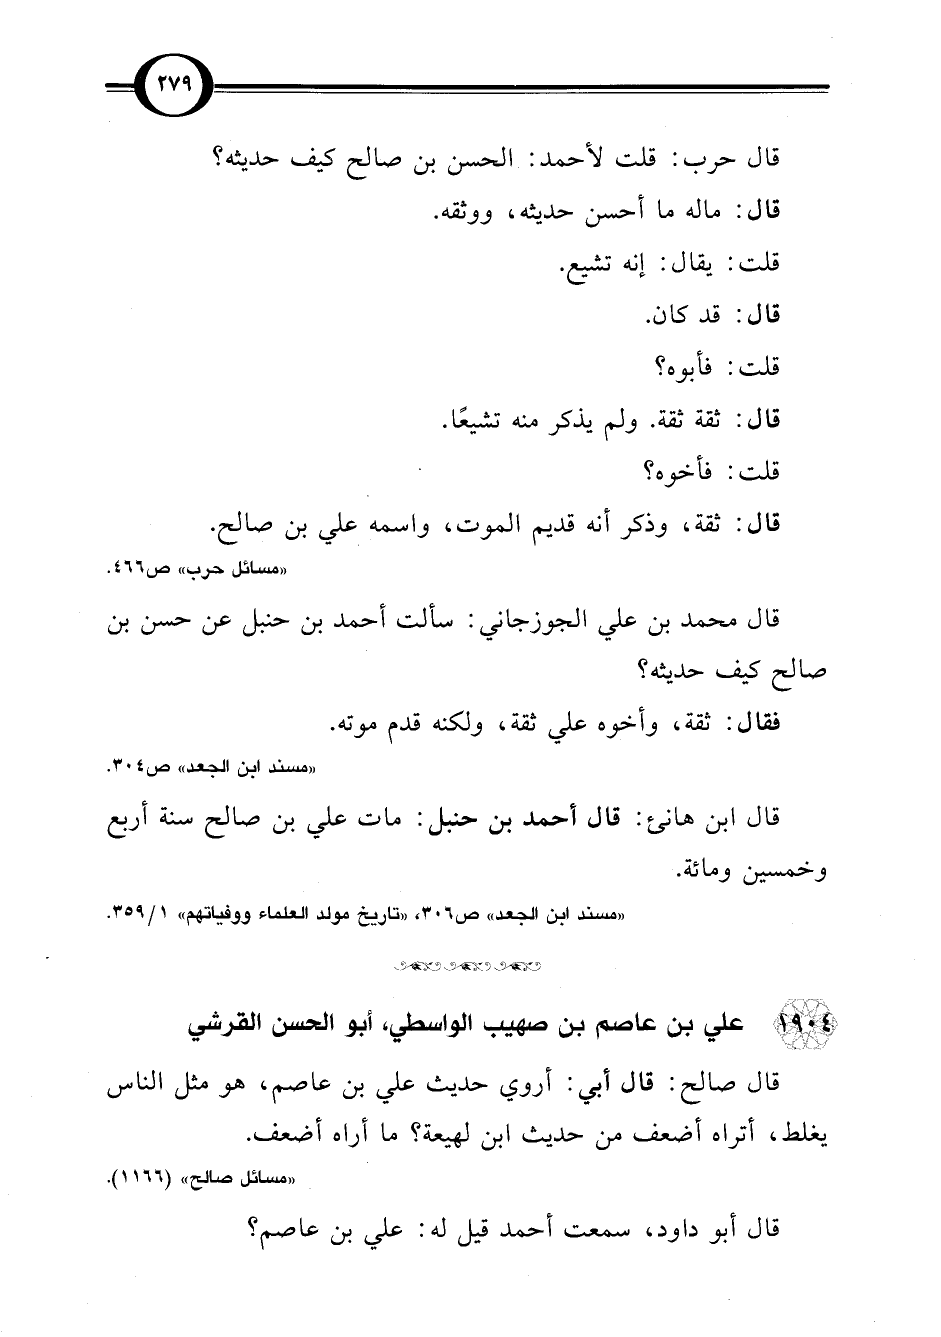 ٢٧٩
قال حرب: قلت لأحمد: الحسن بن صالح كيف حديثه؟
قال: ماله ما أحسن حديثه، ووثقه.
قلت: يقال: إنه تشيع.
قال: قد كان.
قلت: فأبوه؟
قال: ثقة ثقة. ولم يذكر منه تشيعًا.
قلت: فأخوه؟
قال: ثقة، وذكر أنه قديم الموت، واسمه علي بن صالح.
«مسائل حرب» ص٤٦٦.
قال محمد بن علي الجوزجاني: سألت أحمد بن حنبل عن حسن بن
صالح كيف حديثه؟
فقال: ثقة، وأخوه علي ثقة، ولكنه قدم موته.
«مسند ابن الجعد» ص٣٠٤.
قال ابن هانئ: قال أحمد بن حنبل: مات علي بن صالح سنة أربع
وخمسين ومائة.
«مسند ابن الجعد» ص٣٠٦، «تاريخ مولد العلماء ووفياتهم» ١/ ٣٥٩.
١٩٠٤ علي بن عاصم بن صهيب الواسطي، أبو الحسن القرشي
قال صالح: قال أبي: أروي حديث علي بن عاصم، هو مثل الناس
يغلط، أتراه أضعف من حديث ابن لهيعة؟ ما أراه أضعف.
«مسائل صالح» (١١٦٦).
قال أبو داود، سمعت أحمد قيل له: علي بن عاصم؟